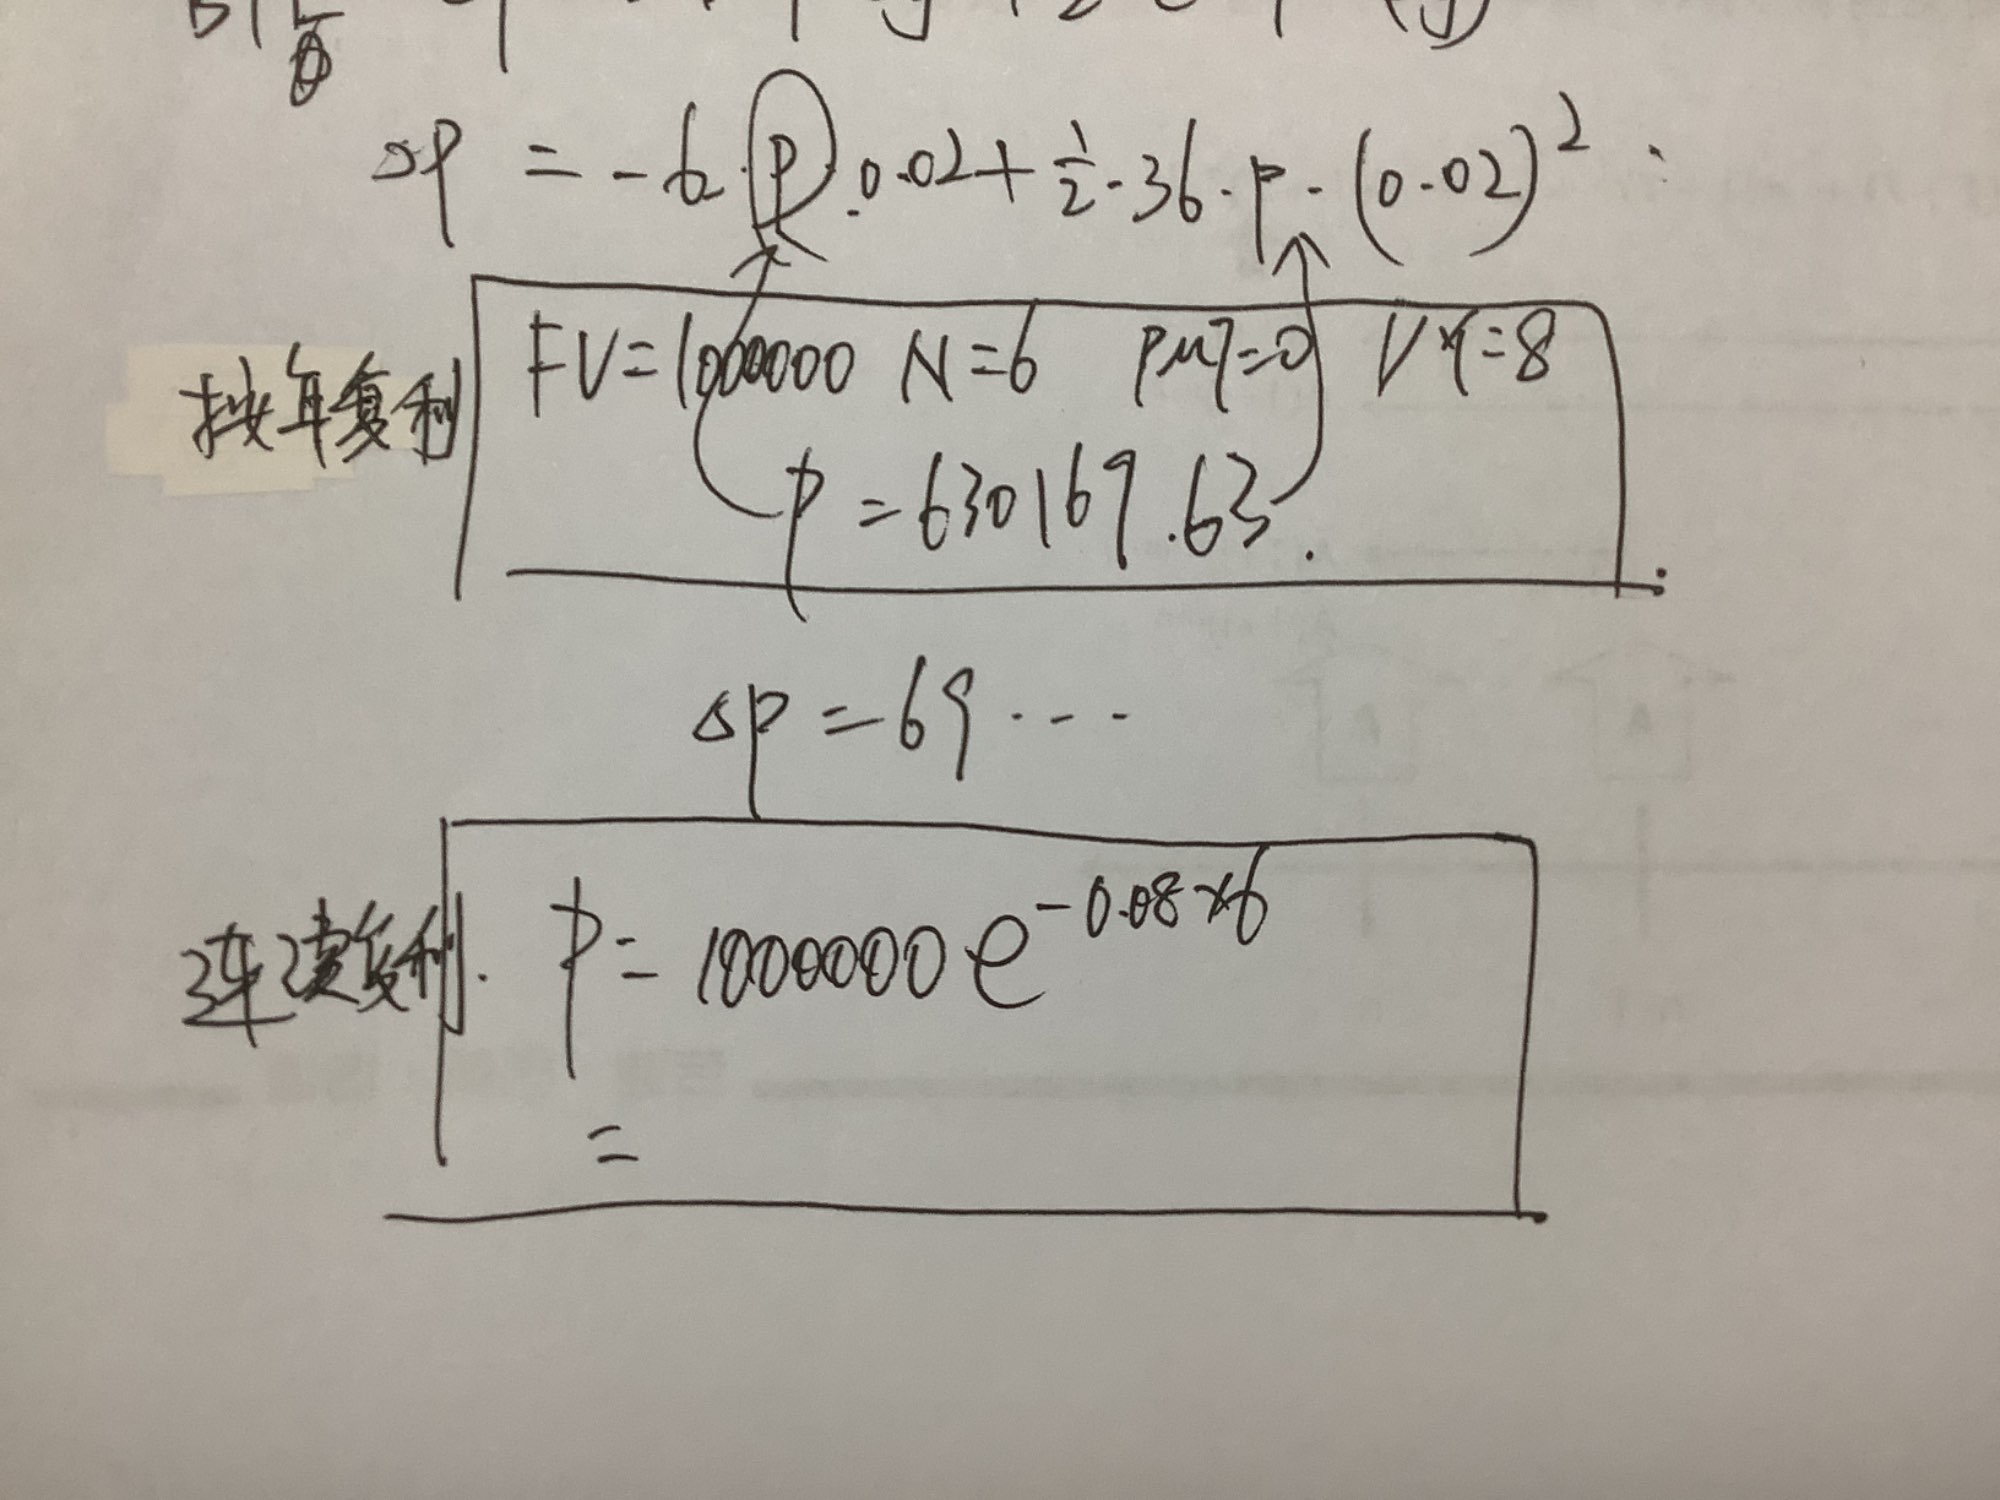 ΔP = -6·P·0.02+½·36·P·(0.02)²
按年复利 FV=1000000 N=6 PMT=0 I/Y=8
P=630169.63.
ΔP=69...
连续复利. P=1000000e^-0.08×6
=